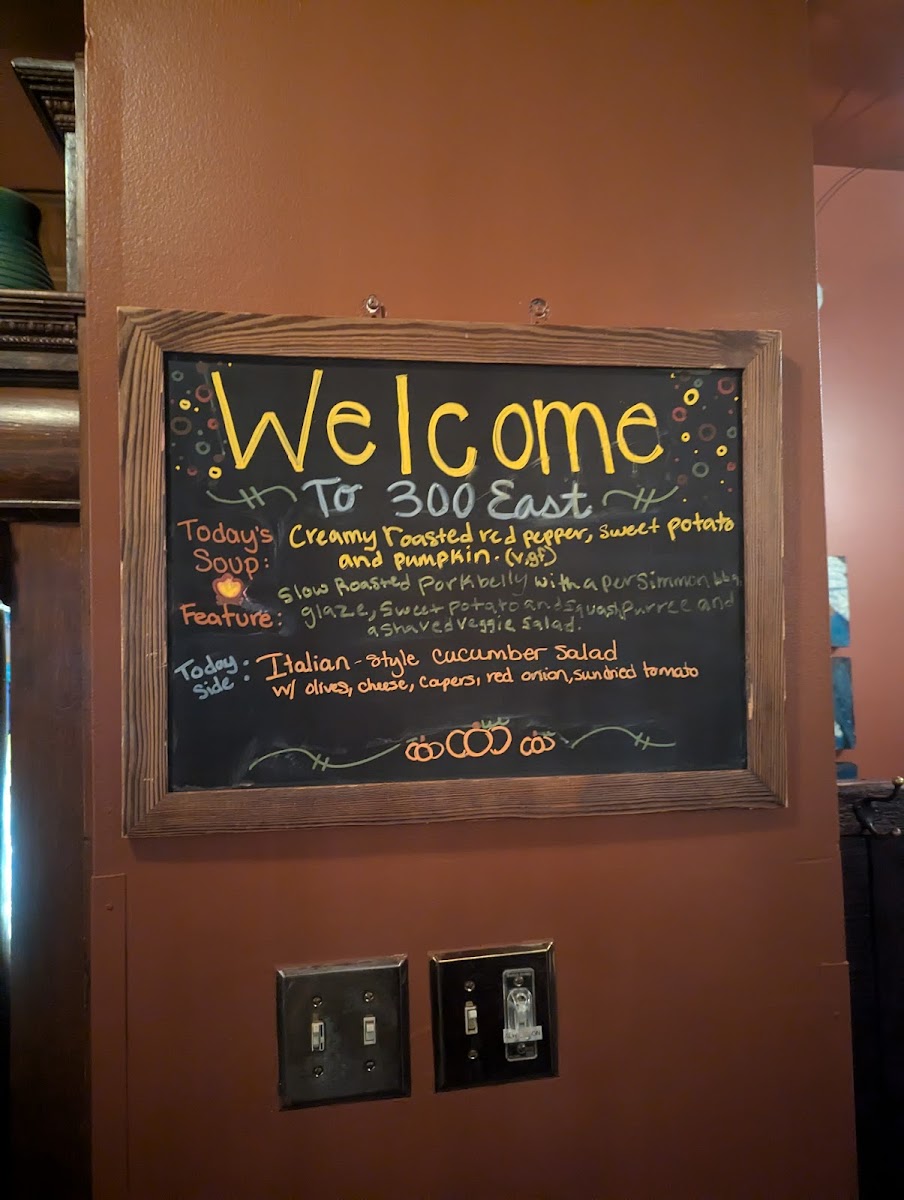 Welcome
To 300 East
Today's
Soup:
Creamy roasted red pepper, sweet potato
and pumpkin. (v,gf)
Feature:
Slow Roasted Porkbelly with a persimmon bbq
glaze, Sweet potato and squash purree and
a shaved veggie salad.
Today
Side:
Italian-style cucumber salad
w/ olives, cheese, capers, red onion, sundried tomato